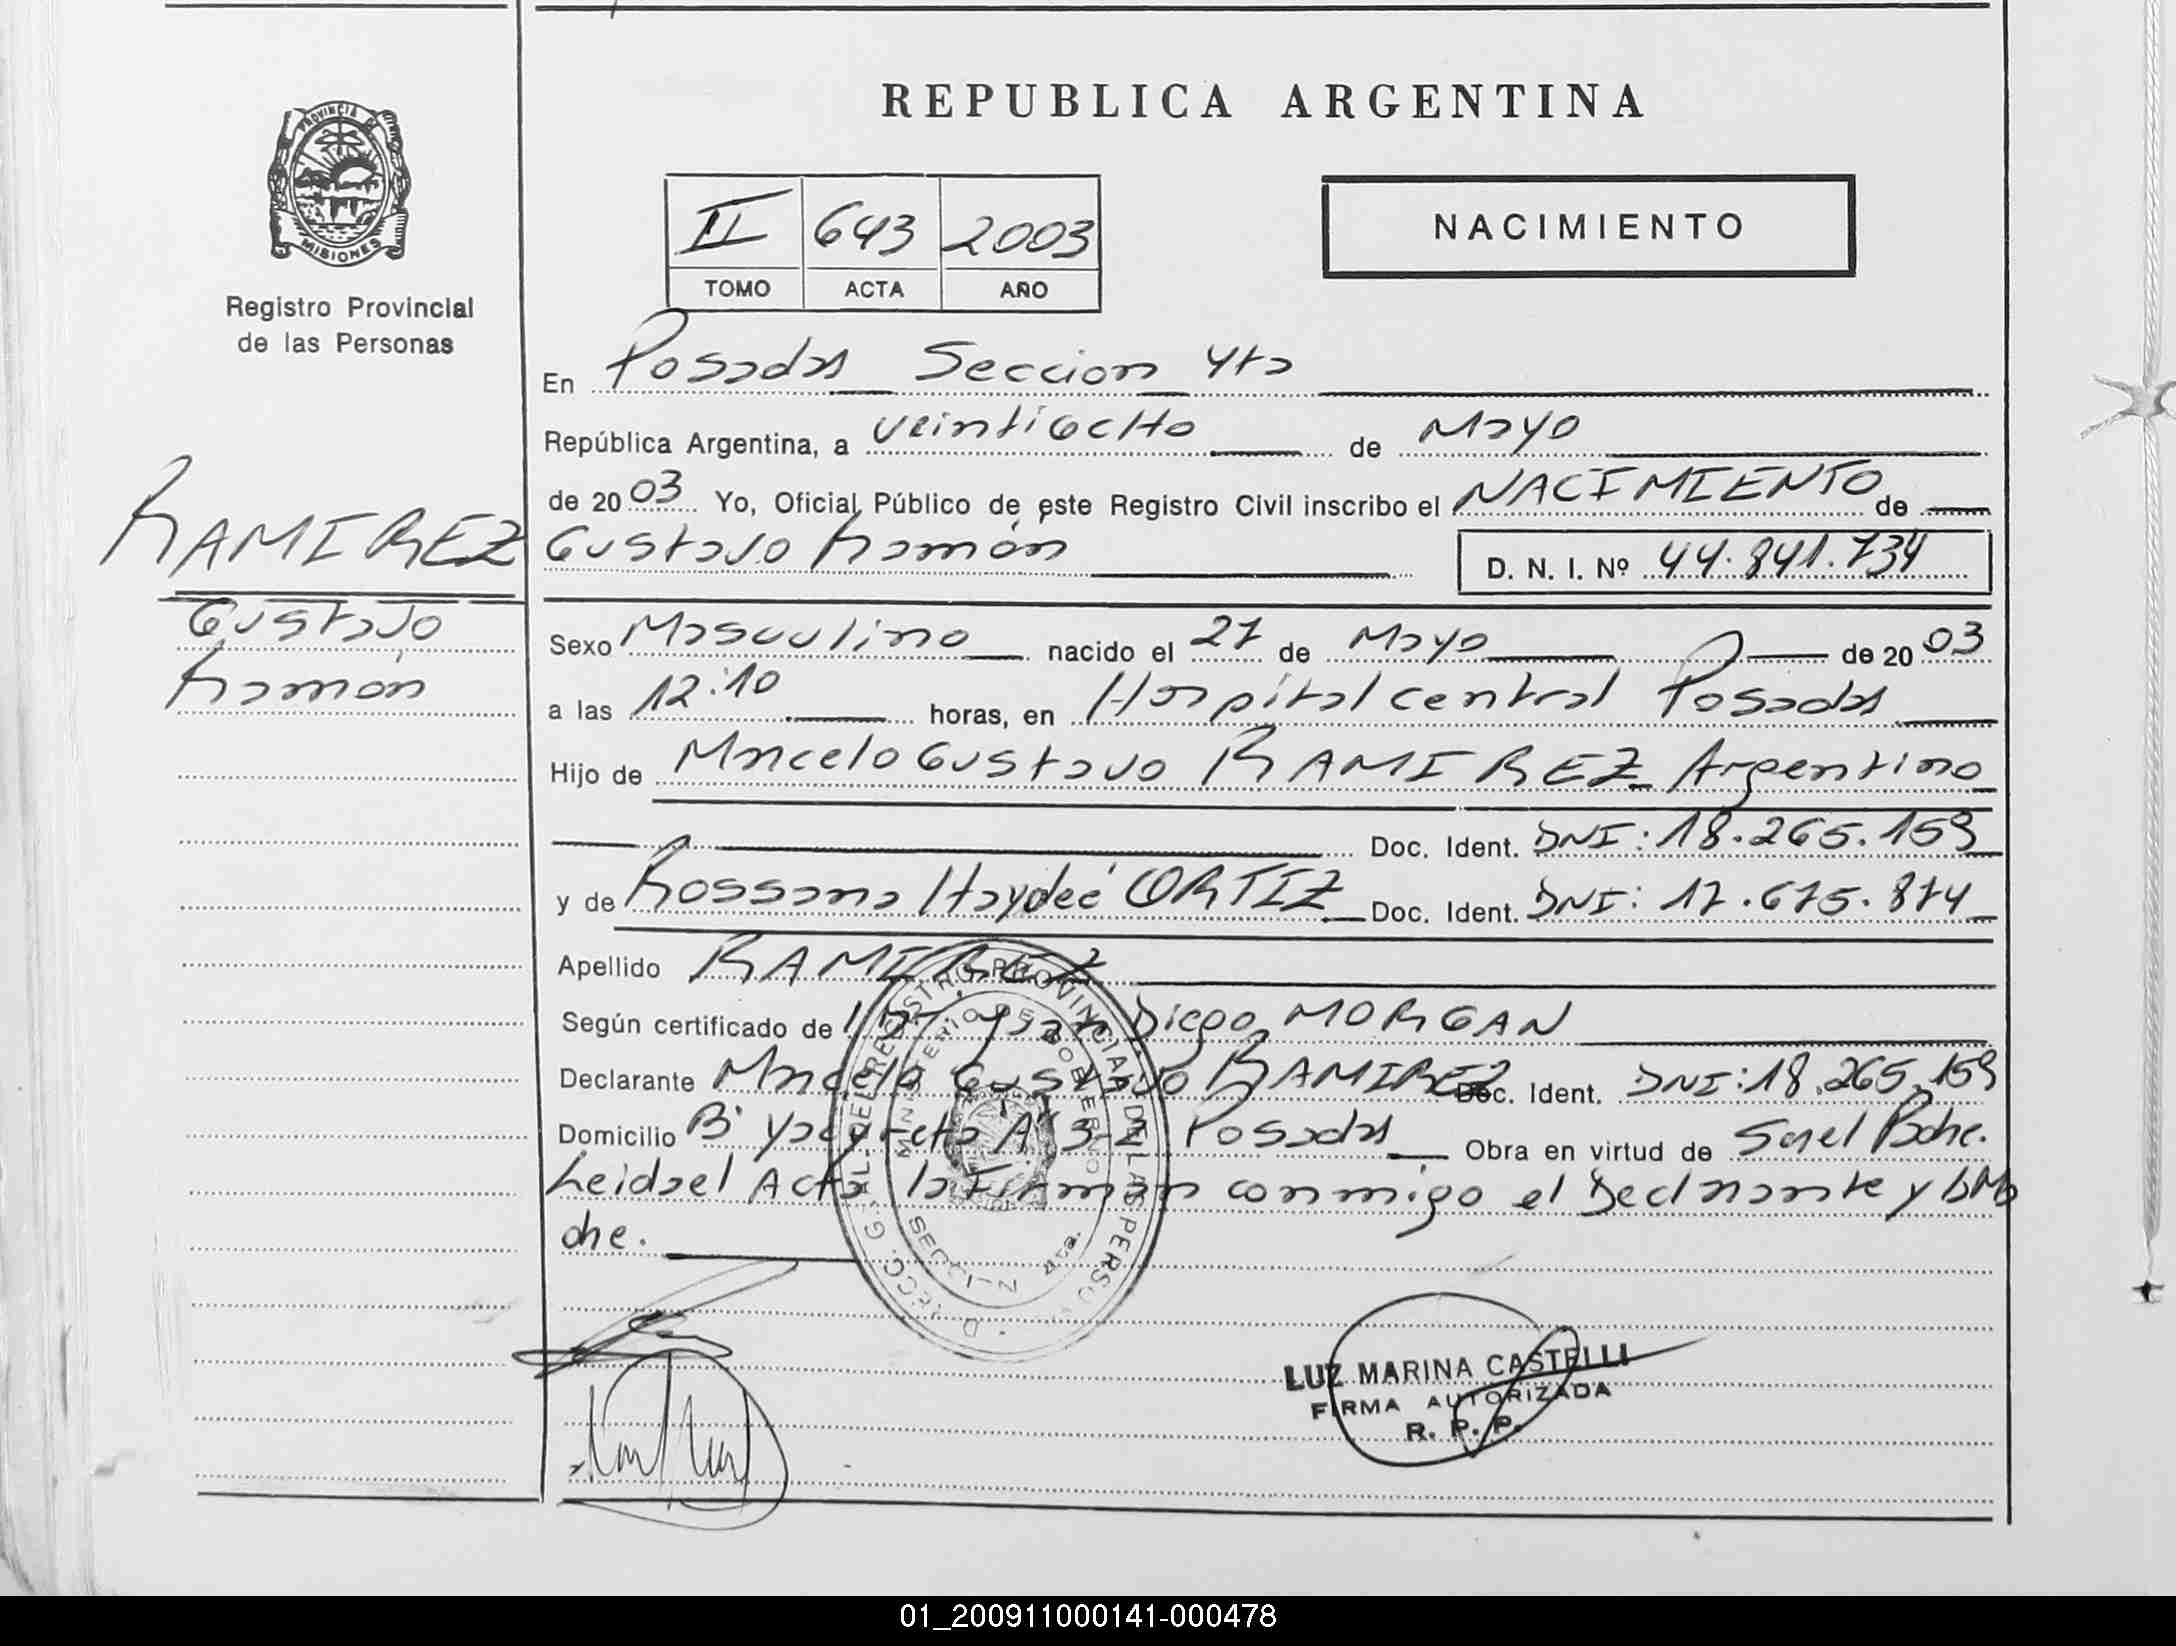 REPUBLICA ARGENTINA
PROVINCIA DE
MISIONES
Registro Provincial
de las Personas
II 643 2003
TOMO ACTA AÑO
NACIMIENTO
En Posadas Seccion 4ta
República Argentina, a veintiocHo de Mayo
de 2003 Yo, Oficial Público de este Registro Civil inscribo el NACIMIENTO de
RAMIREZ
Gustavo
Ramón
Gustavo Ramón D. N. I. Nº 44.841.734
Sexo Masculino nacido el 27 de Mayo de 2003
a las 12:10 horas, en Hospital central Posadas
Hijo de Marcelo Gustavo RAMIREZ Argentino
Doc. Ident. DNI: 18.265.159
y de Rossana Haydeé ORTIZ Doc. Ident. DNI: 17.675.874
Apellido RAMIREZ
Según certificado de Diego MORGAN
Declarante Marcelo Gustavo RAMIREZ Doc. Ident. DNI: 18.265.159
Domicilio B° Yacyreta A" 3-2 Posadas Obra en virtud de Ser el Padre.
Leida el Acta la Firman conmigo el Declarante y la Ma
dre.
DIRECC. GRAL. DEL REGISTRO PROVINCIAL DE LAS PERSONAS
MINISTERIO DE GOBIERNO
SECCION 4ta.
LUZ MARINA CASTELLI
FIRMA AUTORIZADA
R. P. P.
01_200911000141-000478